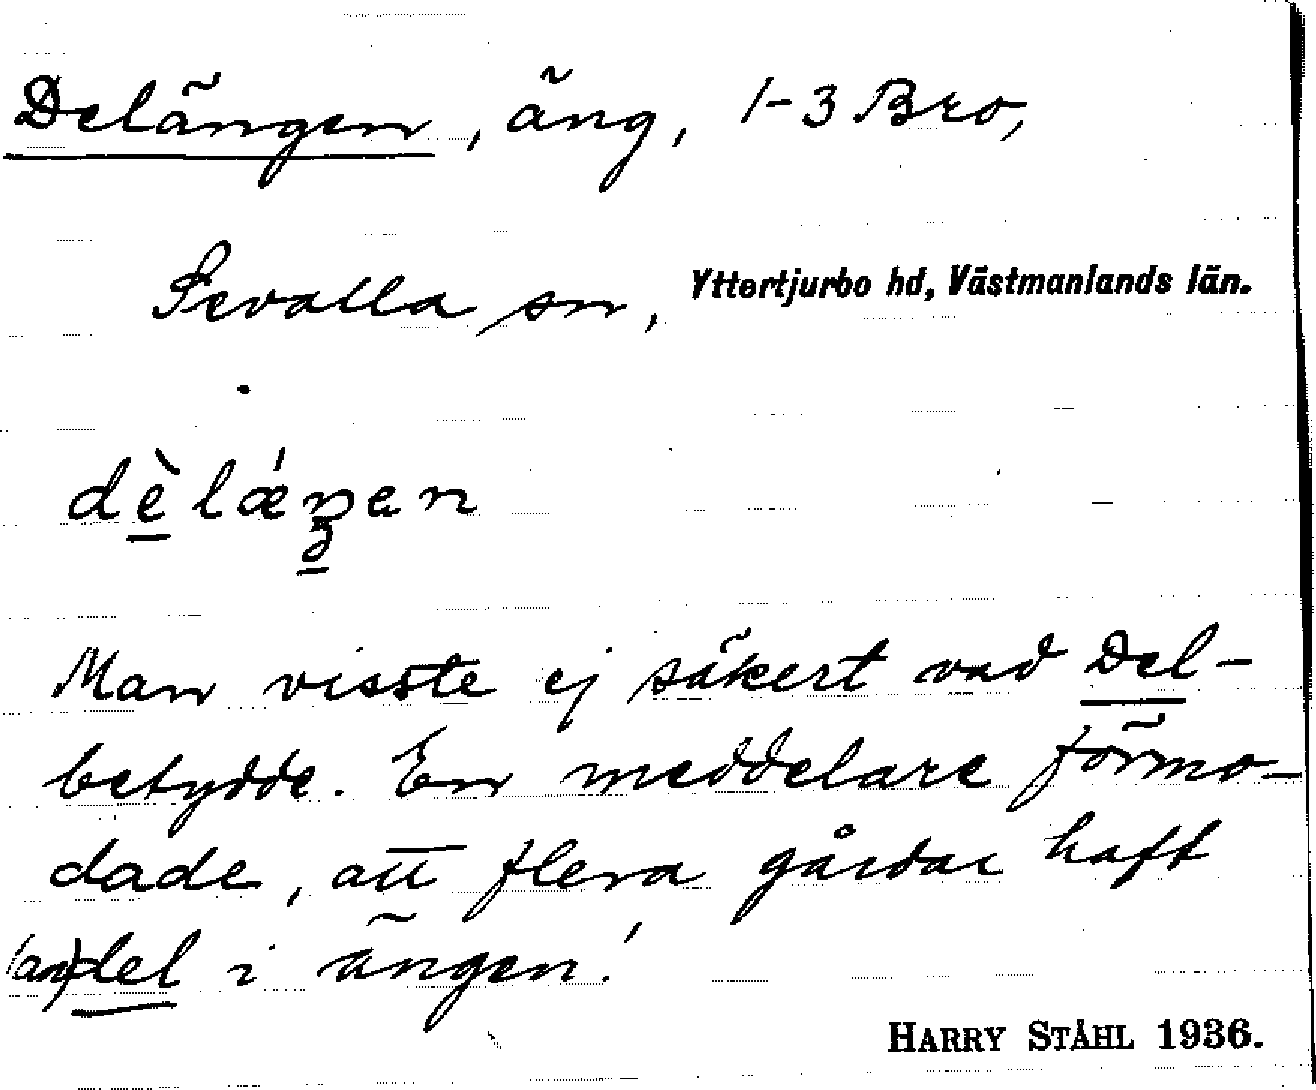 Delängen, äng, 1-3 Bro,
Sevalla sn, Yttertjurbo hd, Västmanlands län.
dèlǽŋen
Man visste ej säkert vad Del-
betydde. En meddelare förmo-
dade, att flera gårdar haft
(an)del i ängen!
HARRY STÅHL 1936.